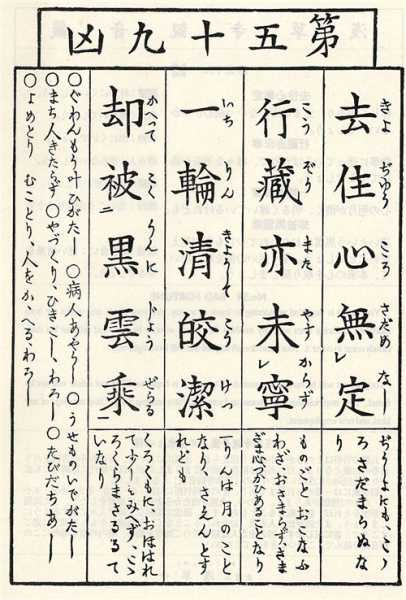 第五十九凶
去住心無定
きよ ぢゆう こころ さだめ なし
ぢうしよにも、こゝ
ろさだまらぬな
り
行藏亦未レ寧
こう ぞう また やす からず
ものごと おこなふ
わざ、おさまらず、さま
ざま心づかひあることなり
一輪清皎潔
いち りん きようして こう けつ
一りんは月のこと
なり、さえんとす
れども
却被二黒雲乘一
かへって こく うんに じよう ぜらる
くろくもに、おほはれ
て少しもみへず、こゝ
ろくらまさるるて
いなり
〇ぐわんもう叶ひがたし 〇病人あやうし 〇うせものいでがたし
〇まち人きたらず 〇やづくり、ひきこし、わろし 〇たびだちあし
〇よめとり むことり、人をかゝへる、わろし